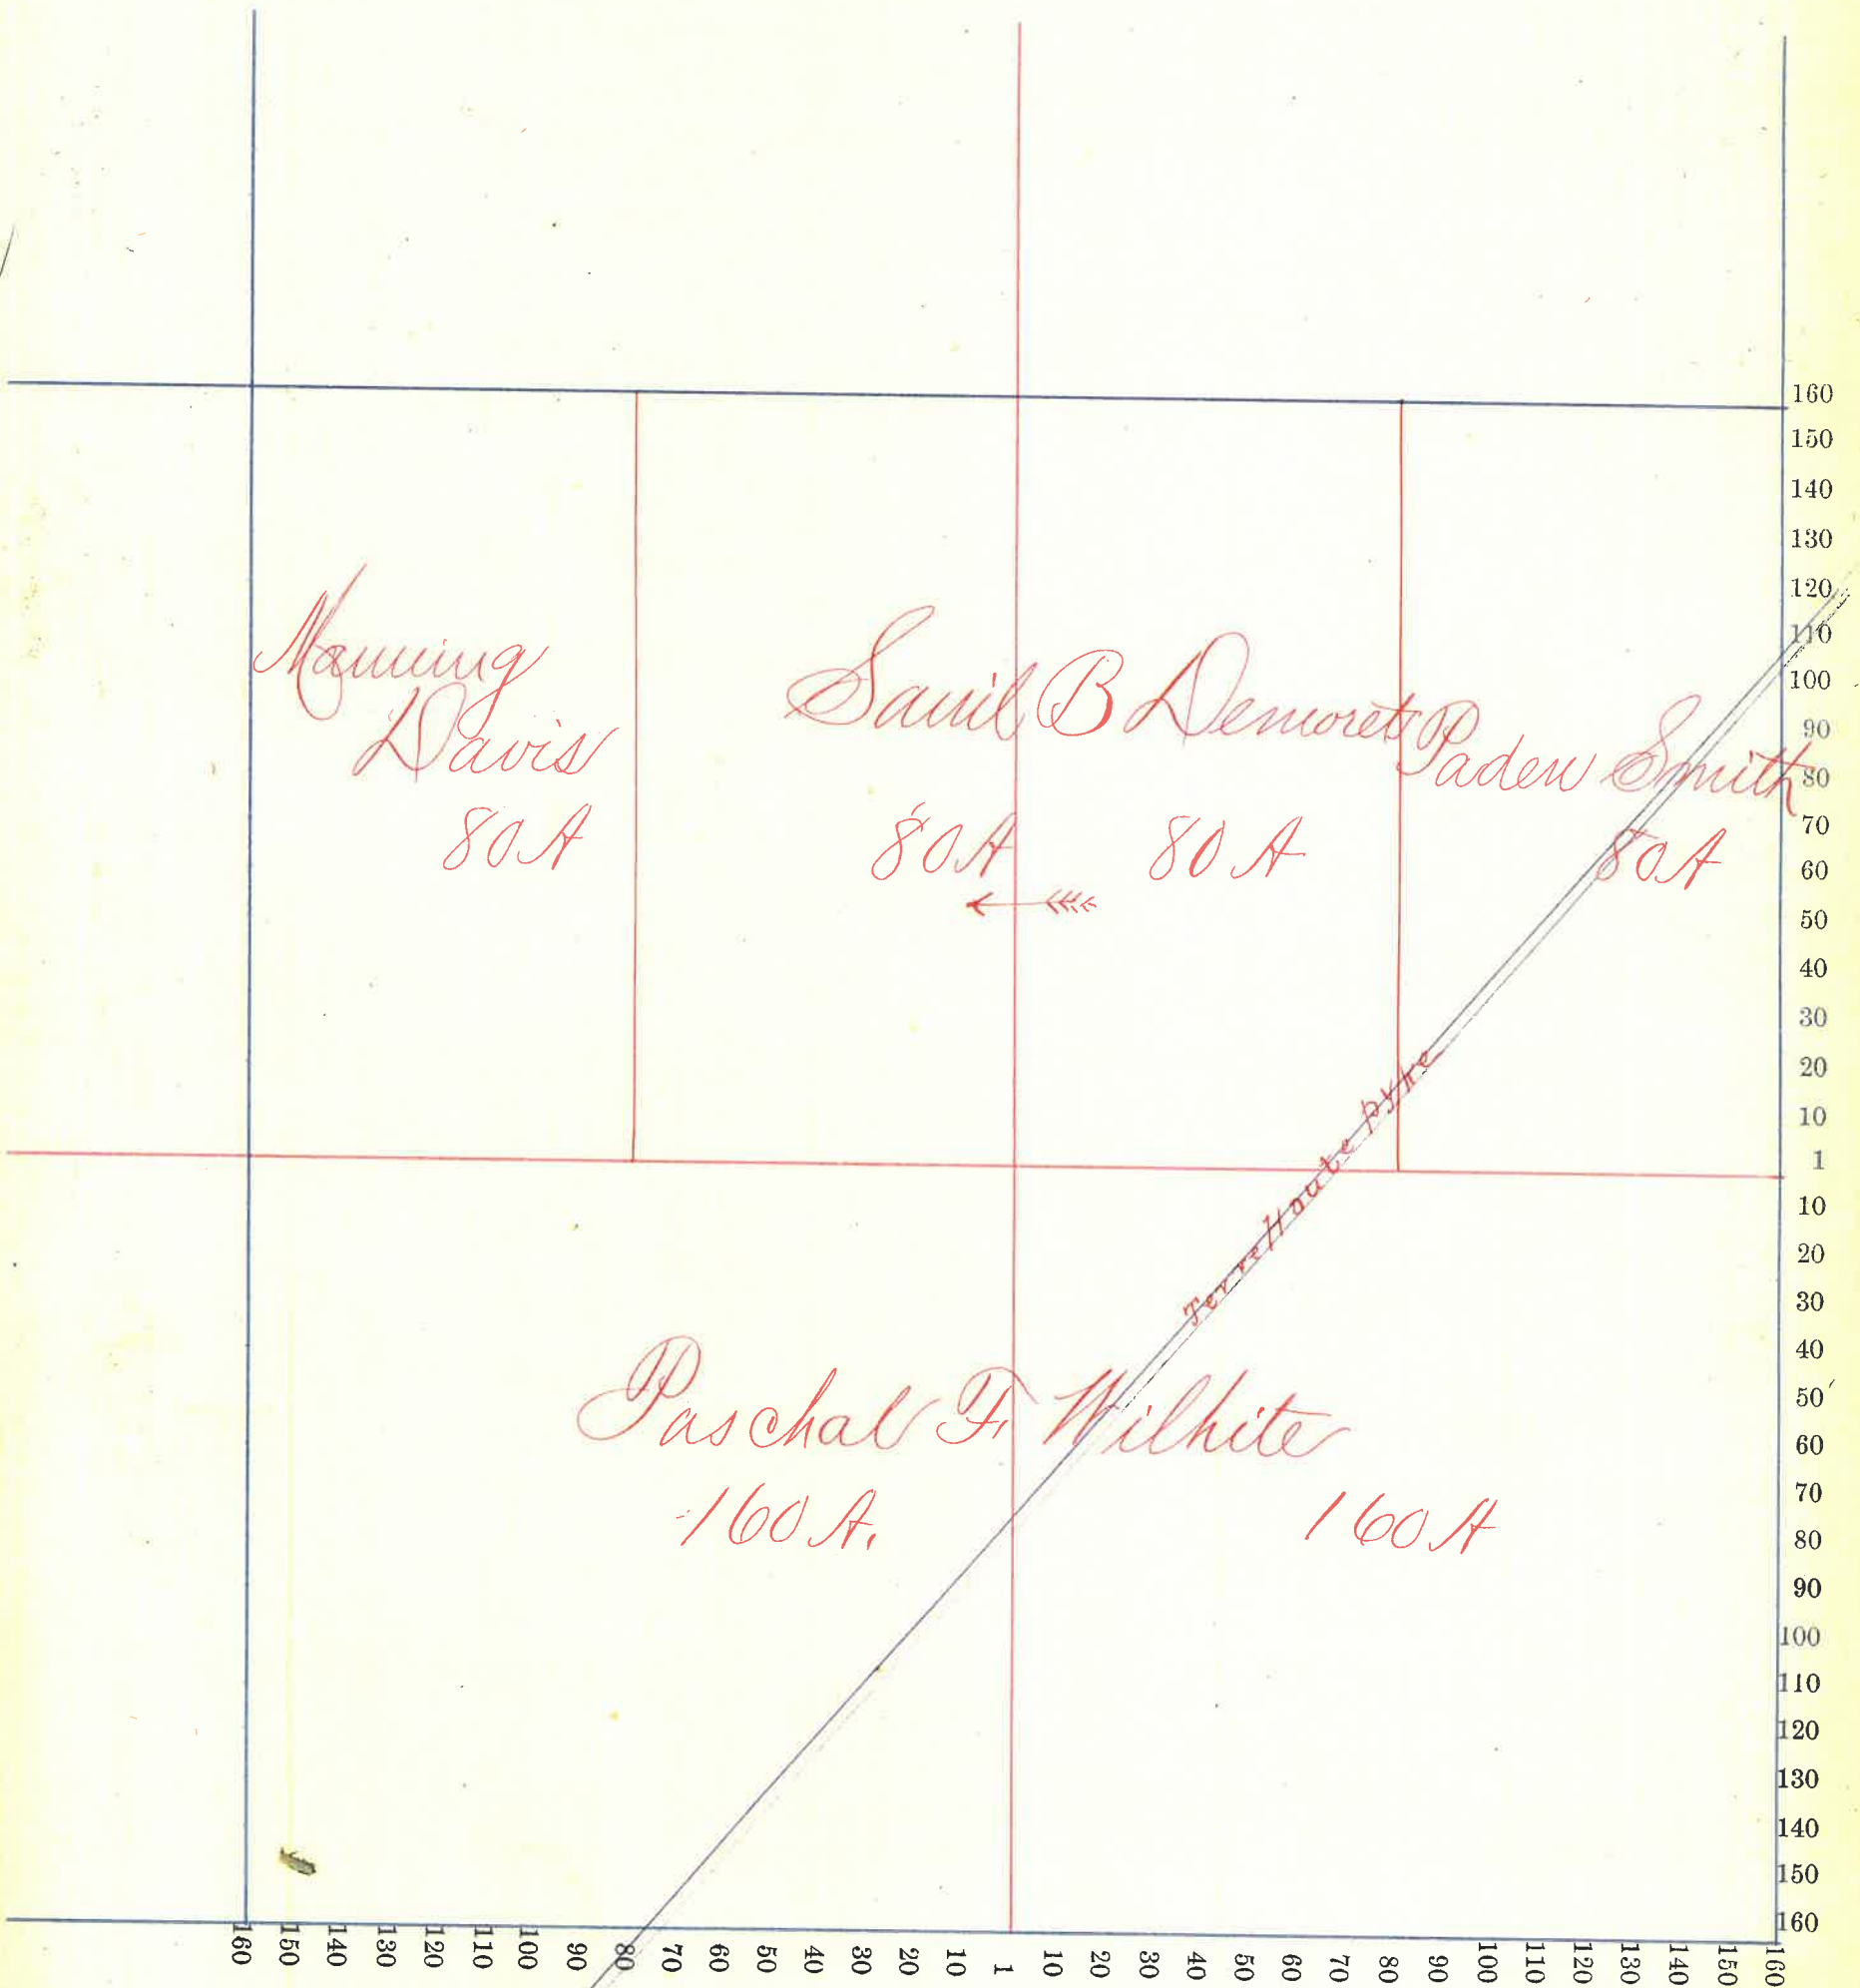 Manning
Davis
80 A
Saml B Demorets
80 A
80 A
Paden Smith
80 A
Terre Haute pyke
Paschal F. Wilhite
160 A.
160 A
160
150
140
130
120
110
100
90
80
70
60
50
40
30
20
10
1
10
20
30
40
50
60
70
80
90
100
110
120
130
140
150
160
160 150 140 130 120 110 100 90 80 70 60 50 40 30 20 10 1 10 20 30 40 50 60 70 80 90 100 110 120 130 140 150 160